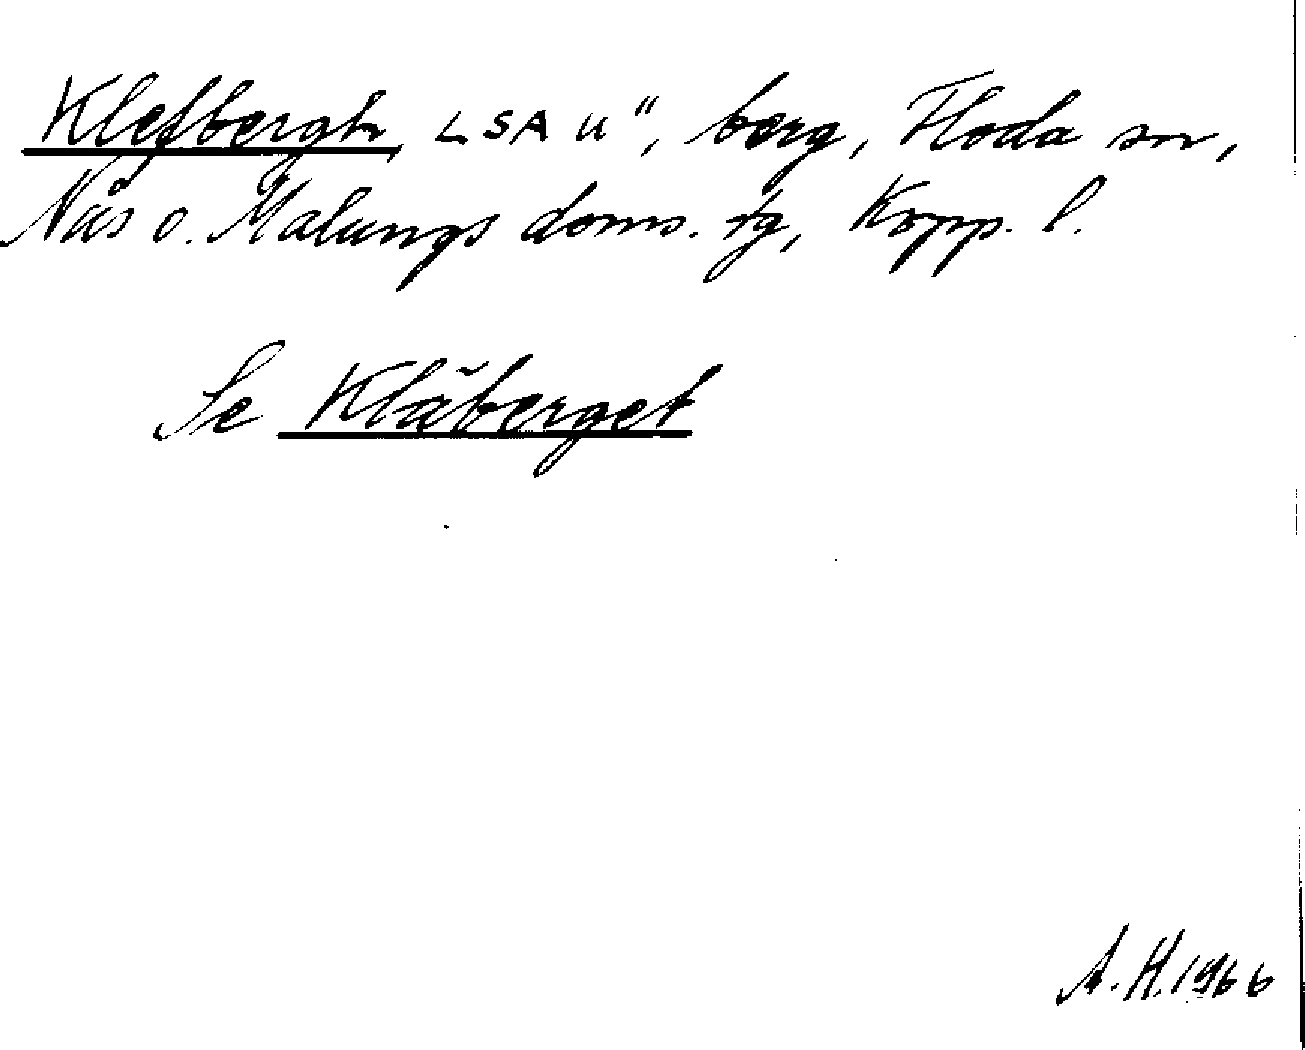 Klefbergh, LSA u", berg, Floda sn,
Nås o. Malungs doms. tg, Kopp. l.
Se Kläberget
A.H. 1966